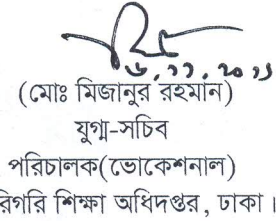 ৬.১১.২০১১
(মোঃ মিজানুর রহমান)
যুগ্ম-সচিব
পরিচালক(ভোকেশনাল)
রিগরি শিক্ষা অধিদপ্তর, ঢাকা।